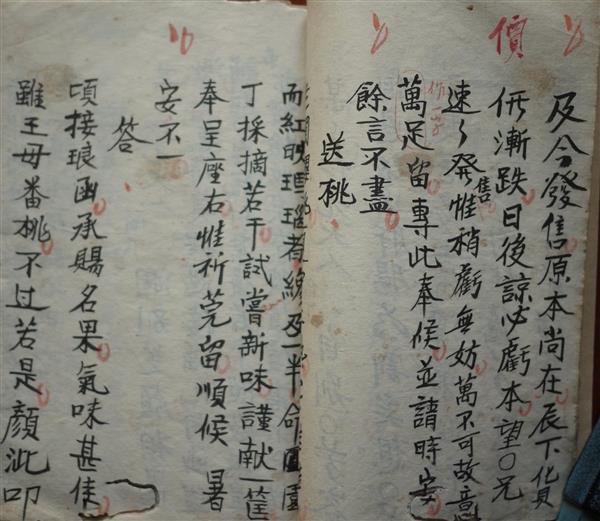 價
及今發售原本尚在辰下貨
伢漸跌日後諒必虧本望〇兄
速々發售惟稍虧無妨萬不可故意
作一字
萬足留專此奉候並請時安
餘言不盡
送桃
而紅映瑾瑤者纔及一半命園
丁採摘若干試嘗新味謹献一筐
奉呈座右惟祈莞留順候 暑
安不一
答
頃接琅函承賜名果氣味甚佳
雖王母番桃不过若是顏泚叩